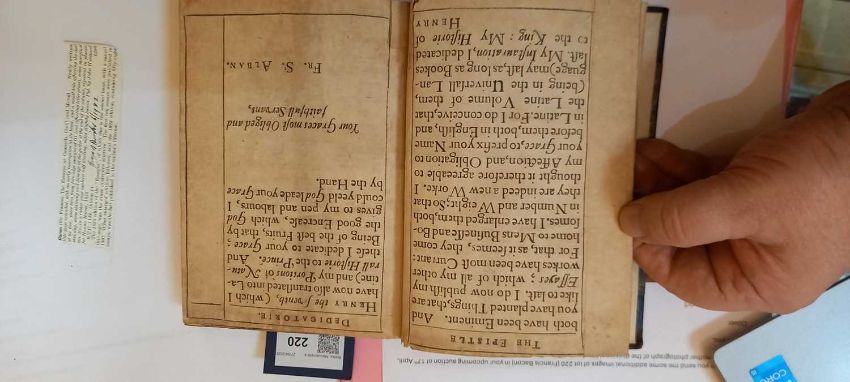 THE EPISTLE
both have been Eminent. And
you have planted Things, that are
like to laſt. I do now publiſh my
Eſſayes ; which of all my other
workes have been moſt Currant:
For that, as it ſeemes, they come
home to Mens Buſineſſe and Bo-
ſomes. I have enlarged them, both
in Number and Weight; So that
they are indeed a new Worke. I
thought it therefore agreeable to
my Affection, and Obligation to
your Grace, to prefix your Name
before them, both in Engliſh, and
in Latine. For I do conceive, that
the Latine Volume of them,
(being in the Univerſall Lan-
guage) may laſt, as long as Bookes
laſt. My Inſtauration, I dedicated
to the King : My Hiſtorie of
HENRY
DEDICATORIE.
HENRY the ſeventh, (which I
have now alſo tranſlated into La-
tine) and my Portions of Natu-
rall Hiſtorie to the Prince. And
theſe I dedicate to your Grace;
Being of the beſt Fruits, that by
the good Encreaſe, which God
gives to my pen and labours, I
could yeeld God leade your Grace
by the Hand.
Your Graces moſt Obliged and
faithfull Servant,
FR. S. ALBAN.
220
you send me some additional images of lot 220 (Francis Bacon) in your upcoming auction of 17th April.
another photograph of the
CORE